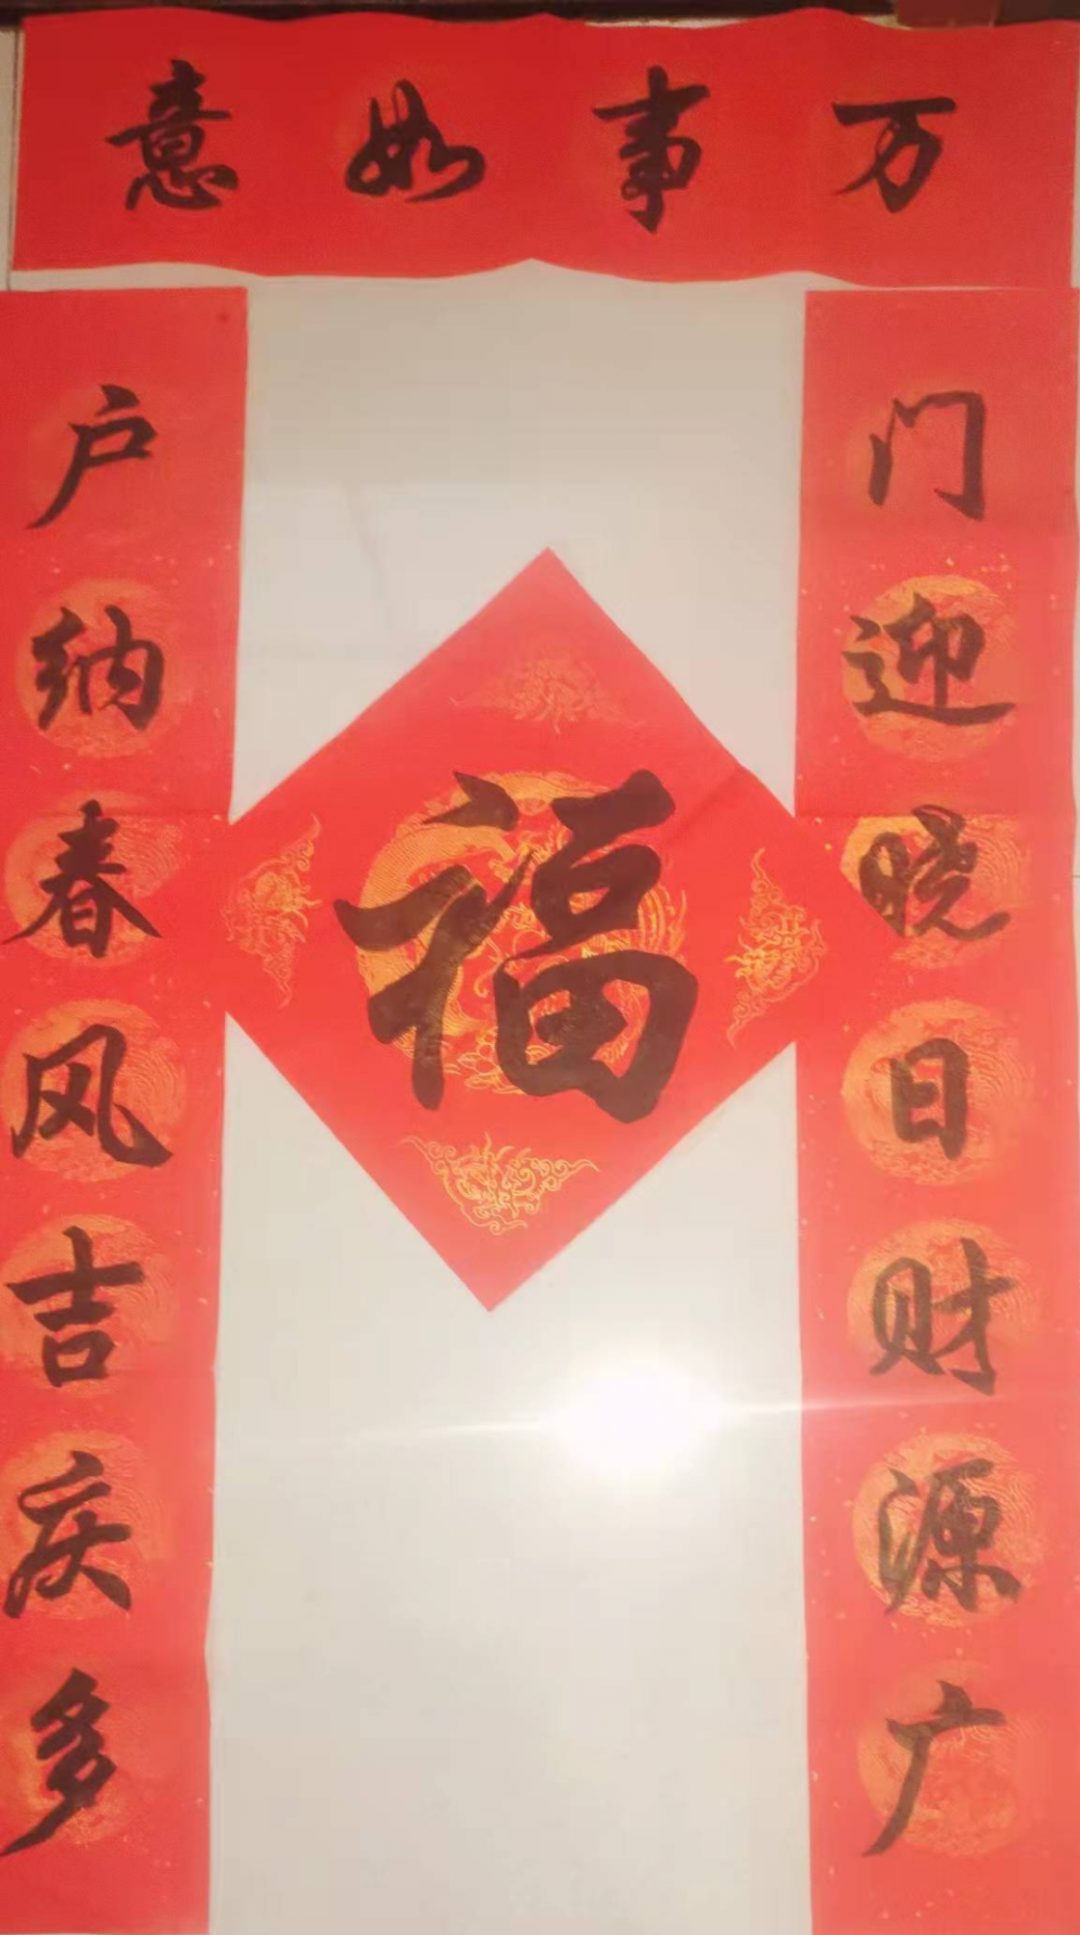 万事如意
门迎晓日财源广
户纳春风吉庆多
福